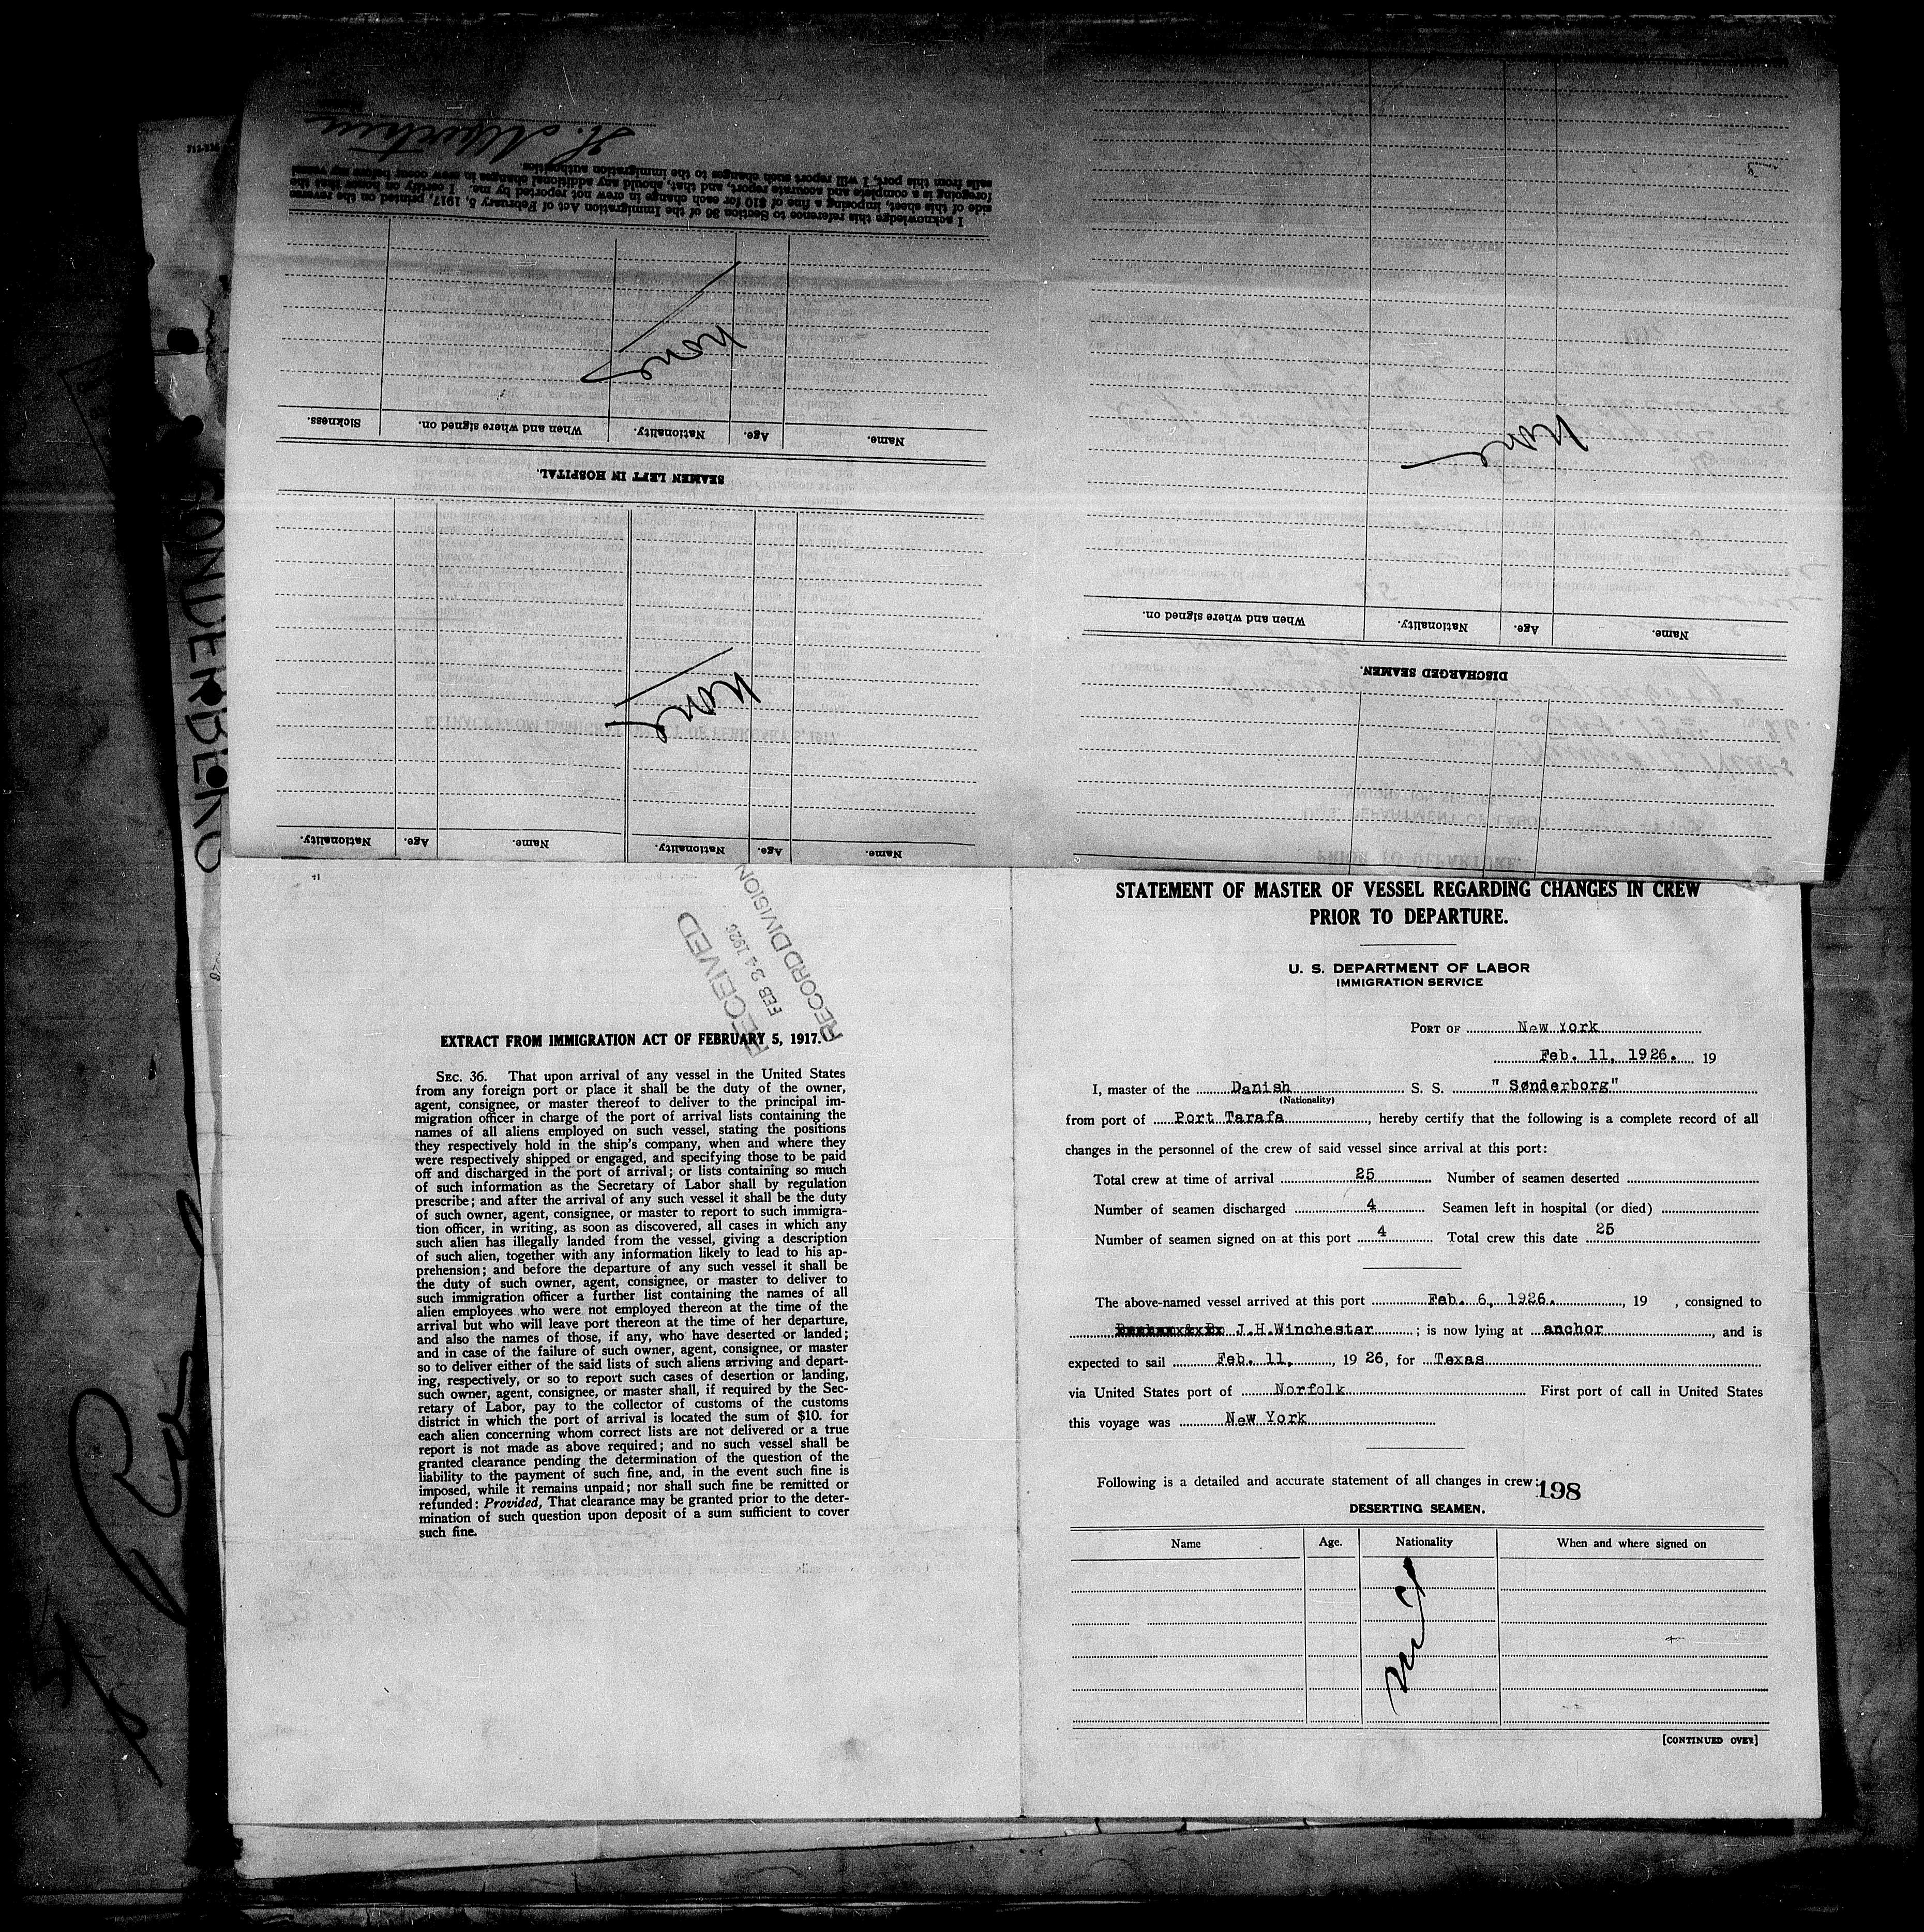 H. Martin
I acknowledge this reference to Section 36 of the Immigration Act of February 5, 1917, printed on the reverse
side of this sheet, imposing a fine of $10 for each change in crew not reported by me. I certify on honor that the
foregoing is a complete and accurate report, and that, should any additional changes in crew occur before my vessel
sails from this port, I will report such changes to the immigration authorities.
None
Name. Age. Nationality. When and where signed on. Sickness.
SEAMEN LEFT IN HOSPITAL.
None
Name. Age. Nationality. Name. Age. Nationality.
None
Name. Age. Nationality. When and where signed on.
DISCHARGED SEAMEN.
SONDERBORG
RECEIVED
FEB 24 1926
RECORD DIVISION
EXTRACT FROM IMMIGRATION ACT OF FEBRUARY 5, 1917.
SEC. 36. That upon arrival of any vessel in the United States
from any foreign port or place it shall be the duty of the owner,
agent, consignee, or master thereof to deliver to the principal im-
migration officer in charge of the port of arrival lists containing the
names of all aliens employed on such vessel, stating the positions
they respectively hold in the ship's company, when and where they
were respectively shipped or engaged, and specifying those to be paid
off and discharged in the port of arrival; or lists containing so much
of such information as the Secretary of Labor shall by regulation
prescribe; and after the arrival of any such vessel it shall be the duty
of such owner, agent, consignee, or master to report to such immigra-
tion officer, in writing, as soon as discovered, all cases in which any
such alien has illegally landed from the vessel, giving a description
of such alien, together with any information likely to lead to his ap-
prehension; and before the departure of any such vessel it shall be
the duty of such owner, agent, consignee, or master to deliver to
such immigration officer a further list containing the names of all
alien employees who were not employed thereon at the time of the
arrival but who will leave port thereon at the time of her departure,
and also the names of those, if any, who have deserted or landed;
and in case of the failure of such owner, agent, consignee, or master
so to deliver either of the said lists of such aliens arriving and depart-
ing, respectively, or so to report such cases of desertion or landing,
such owner, agent, consignee, or master shall, if required by the Sec-
retary of Labor, pay to the collector of customs of the customs
district in which the port of arrival is located the sum of $10. for
each alien concerning whom correct lists are not delivered or a true
report is not made as above required; and no such vessel shall be
granted clearance pending the determination of the question of the
liability to the payment of such fine, and, in the event such fine is
imposed, while it remains unpaid; nor shall such fine be remitted or
refunded: Provided, That clearance may be granted prior to the deter-
mination of such question upon deposit of a sum sufficient to cover
such fine.
STATEMENT OF MASTER OF VESSEL REGARDING CHANGES IN CREW
PRIOR TO DEPARTURE.
U. S. DEPARTMENT OF LABOR
IMMIGRATION SERVICE
PORT OF New York
Feb. 11, 1926. 19
I, master of the Danish S. S. "Sønderborg"
(Nationality)
from port of Port Tarafa, hereby certify that the following is a complete record of all
changes in the personnel of the crew of said vessel since arrival at this port:
Total crew at time of arrival 25 Number of seamen deserted
Number of seamen discharged 4 Seamen left in hospital (or died)
Number of seamen signed on at this port 4 Total crew this date 25
The above-named vessel arrived at this port Feb. 6, 1926., 19 , consigned to
J.H.Winchester; is now lying at anchor, and is
expected to sail Feb. 11, 19 26, for Texas
via United States port of Norfolk First port of call in United States
this voyage was New York
Following is a detailed and accurate statement of all changes in crew:
198
DESERTING SEAMEN.
Name Age. Nationality When and where signed on
None
[CONTINUED OVER]